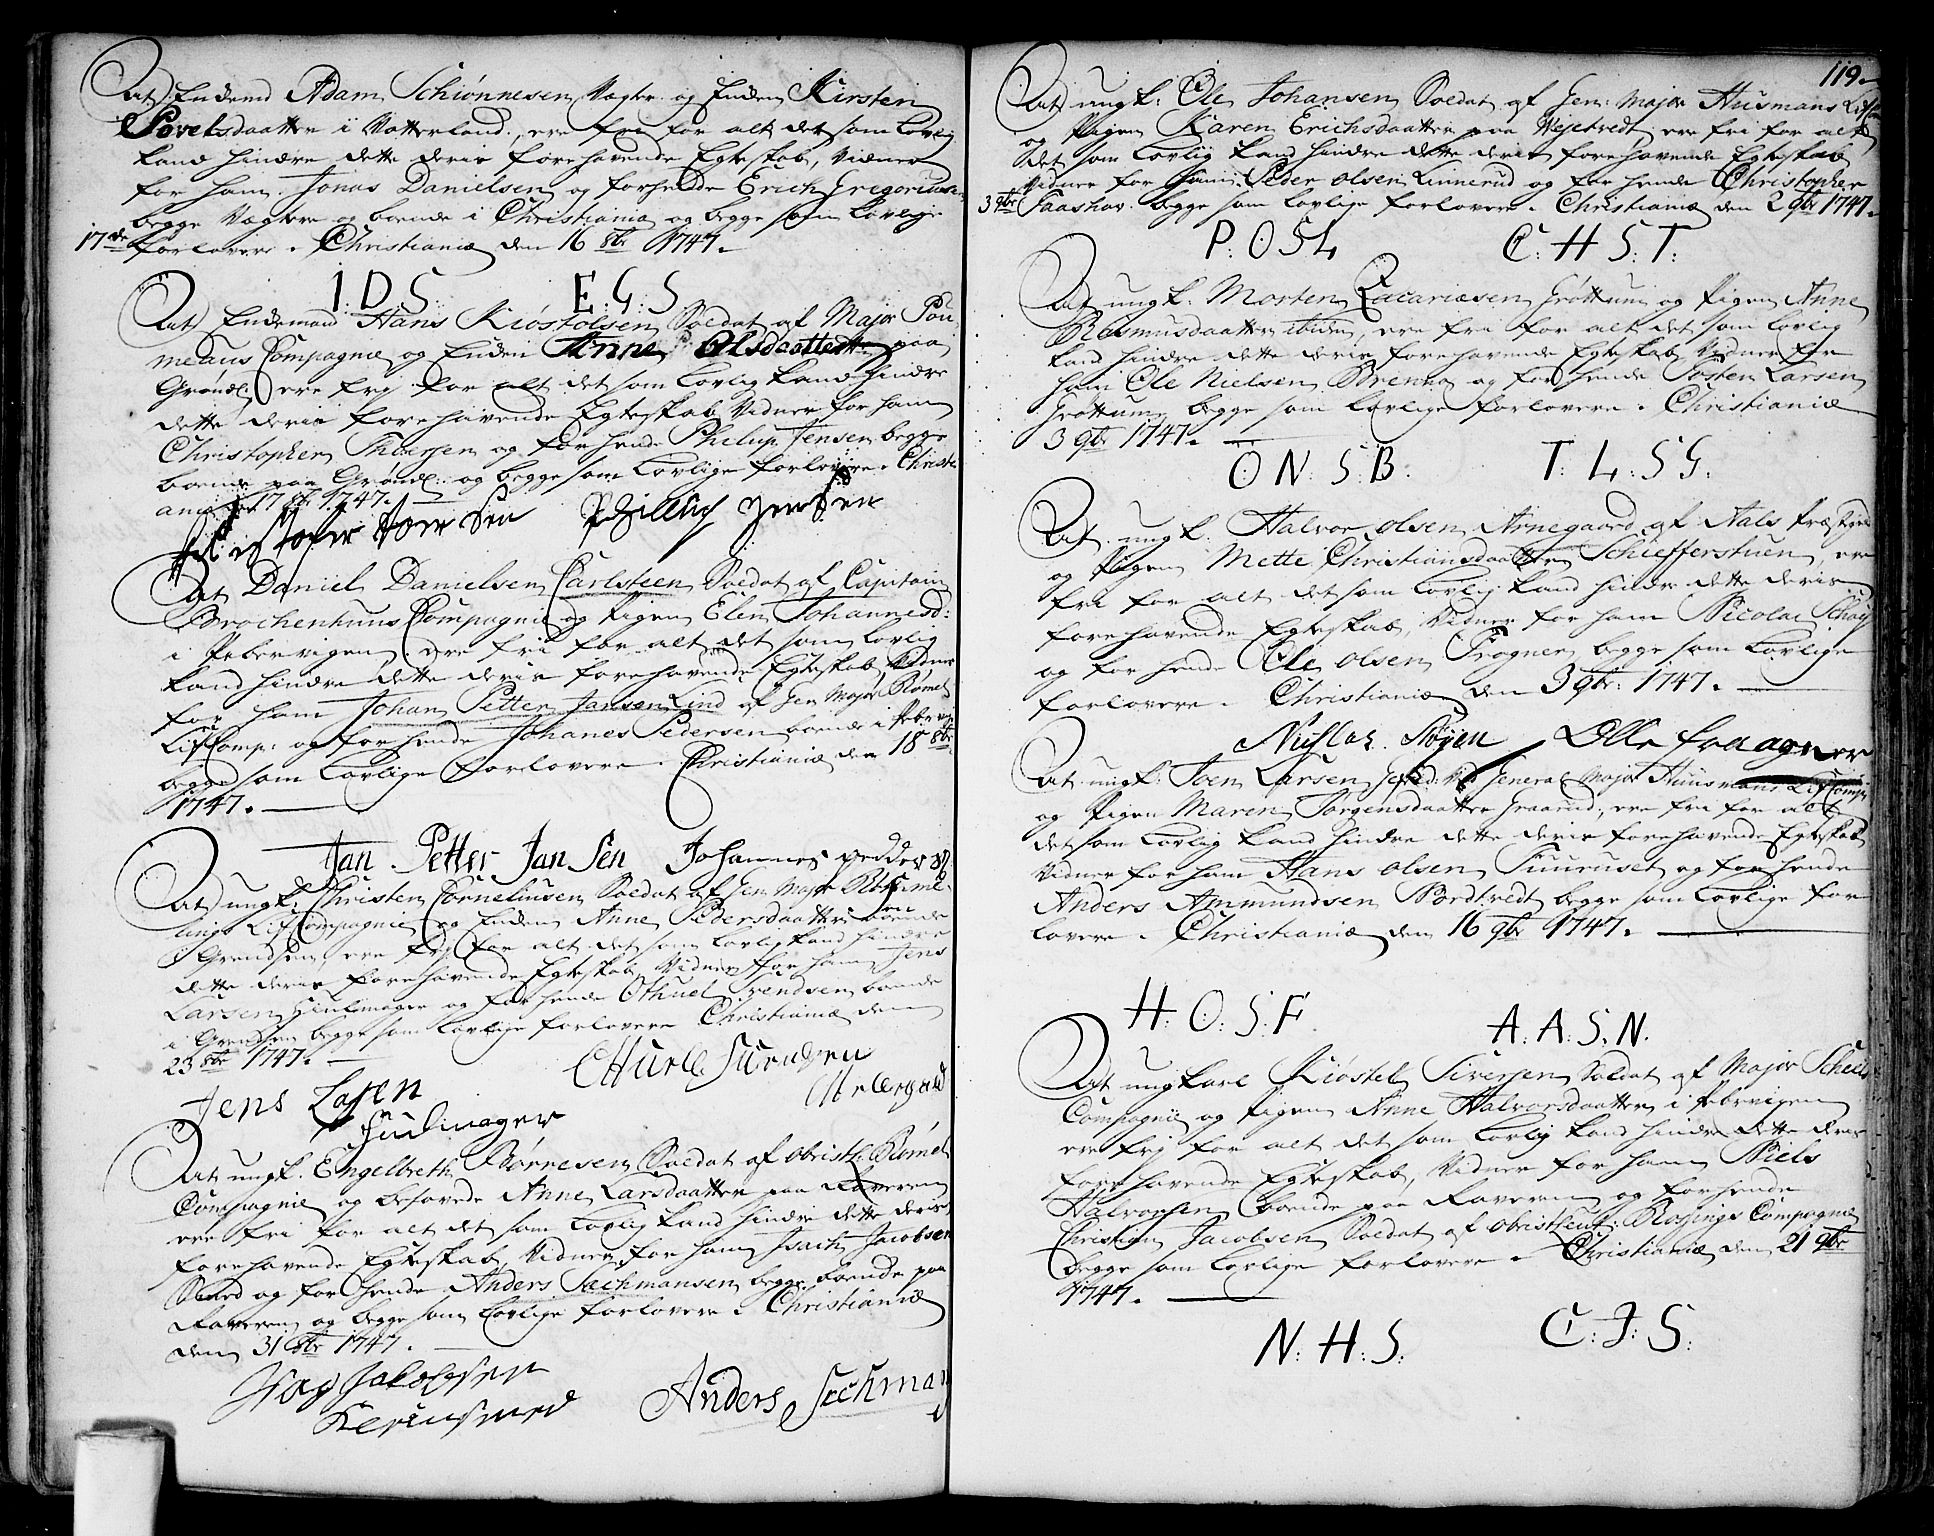 At Enckemd Adam Schiønnesen Vægter og Enken Kirsten
Povelsdaatter i Vatterland, ere fri for alt det som Lovlig
kand hindre dette deris forehavende Egteskab, Vidner
for ham Jonas Danielsen og for hende Erich Gregoriuse
begge Vægtere og boende i Christianiæ og begge som Lovlige
17de forlovere. Christianiæ den 16 8br 1747.
I: D: S: E: G: S
At Enckemand Hans Kiøstolsen Soldat af Major Pou
Compagnie og Enken Anne Olsdaatter paa
Grønd: ere fri for alt det som Lovlig kand hindre
dette deris forehavende Egteskab, Vidner for ham
Christopher Thoersen og for hende Philup Jensen begge
boende paa Grønd: og begge som Lovlige forlovere. Christi
aniæ den 17 8br 1747.
Jensen
At Daniel Danielsen Carlsteen Soldat af Capitain
Brochenhuus Compagnie og Pigen Elen Johannesd:
i Pebervigen, ere fri for alt det som Lovlig
kand hindre dette deris forehavende Egteskab, Vidner
for ham Johan Petter Jansen Lind af Gen Major Rømel
LifComp: og for hende Johanes Pedersen boende i Pebervig
begge som Lovlige forlovere. Christianiæ den 18 8br
1747.
Jan Petter Jan Sen Johannes pedders
At ungk: Christen Corneliusen Soldat af Gen: Major Rømel
lings LifCompagnie og Enken Anne Pedersdaatter boende
i Grendsen, ere fri for alt det som Lovlig kand hindre
dette deris forehavende Egteskab, Vidner for ham Jens
Larsen Hiulmager og for hende Othuel Svendsen boende
i Grendsen begge som Lovlige forlovere Christianiæ den
23 8br 1747.
Jens Lasen
At ungk: Engelbreth Børnesen Soldat af Obristl: Rømel
Compagnie og besovede Anne Larsdaatter paa Raveren
ere fri for alt det som Lovlig kand hindre dette deris
forehavende Egteskab, Vidner for ham Isach Jacobsen
Smed og for hende Anders Sachmansen begge boende paa
Raveren og begge som Lovlige forlovere. Christianiæ
den 31 8br 1747.
Isag Jakobsen
Anders Sechman
119.
At ungk: Ole Johansen Soldat af Gen: Major Husmans Lif
og Pigen Karen Erichsdaatter paa Vejetvedt, ere fri for alt
det som Lovlig kand hindre dette deris forehavende Egteskab
Vidner for ham Peder Olsen Linnerud og for hende Christopher
3 9br begge som Lovlige forlovere. Christianiæ den 2 9br 1747.
P: O S L C: H S: T:
At ungk: Morten Zacariæsen Grøttum og Pigen Anne
Rasmusdaatter ibiden, ere fri for alt det som Lovlig
kand hindre dette deris forehavende Egteskab, Vidner for
ham Ole Nielsen Brenna og for hende Tosten Larsen
Grøttum, begge som Lovlige forlovere. Christianiæ
3 9br 1747.
O: N: S: B: T: L: S G:
At ungk: Halvor Olsen Arnegaard af Aals Præstegield
og Pigen Mette Christiansdaatter Schiefferstuen, ere
fri for alt det som Lovlig kand hindre dette deris
forehavende Egteskab, Vidner for ham Nicolai Schøy
og for hende Ole Olsen Frogner begge som Lovlige
forlovere. Christianiæ den 3 9br: 1747.
Olle fraagner
At ungk: Joen Larsen General Major Huusmans LifComp:
og Pigen Maren Jorgensdaatter Graarud, ere fri for alt
det som Lovlig kand hindre dette deris forehavende Egteskab
Vidner for ham Hans Olsen Fuuruset og for hende
Anders Ammundsen Nordtvedt begge som Lovlige for
lovere. Christianiæ den 16 9br 1747.
H: O: S: F. A: A: S: N.
At ungkarl Kiøstel Siversen Soldat af Major Scheels
Compagnie og Pigen Anne Halvorsdaatter i Pebervigen
ere fri for alt det som Lovlig kand hindre dette deris
forehavende Egteskab, Vidner for ham Niels
Halvorsen boende paa Raveren og for hende
Christian Jacobsen Soldat af Obristlieut: Rossings Compagnie
begge som Lovlige forlovere. Christianiæ den 21 9br
1747.
N: H: S: C: J: S: